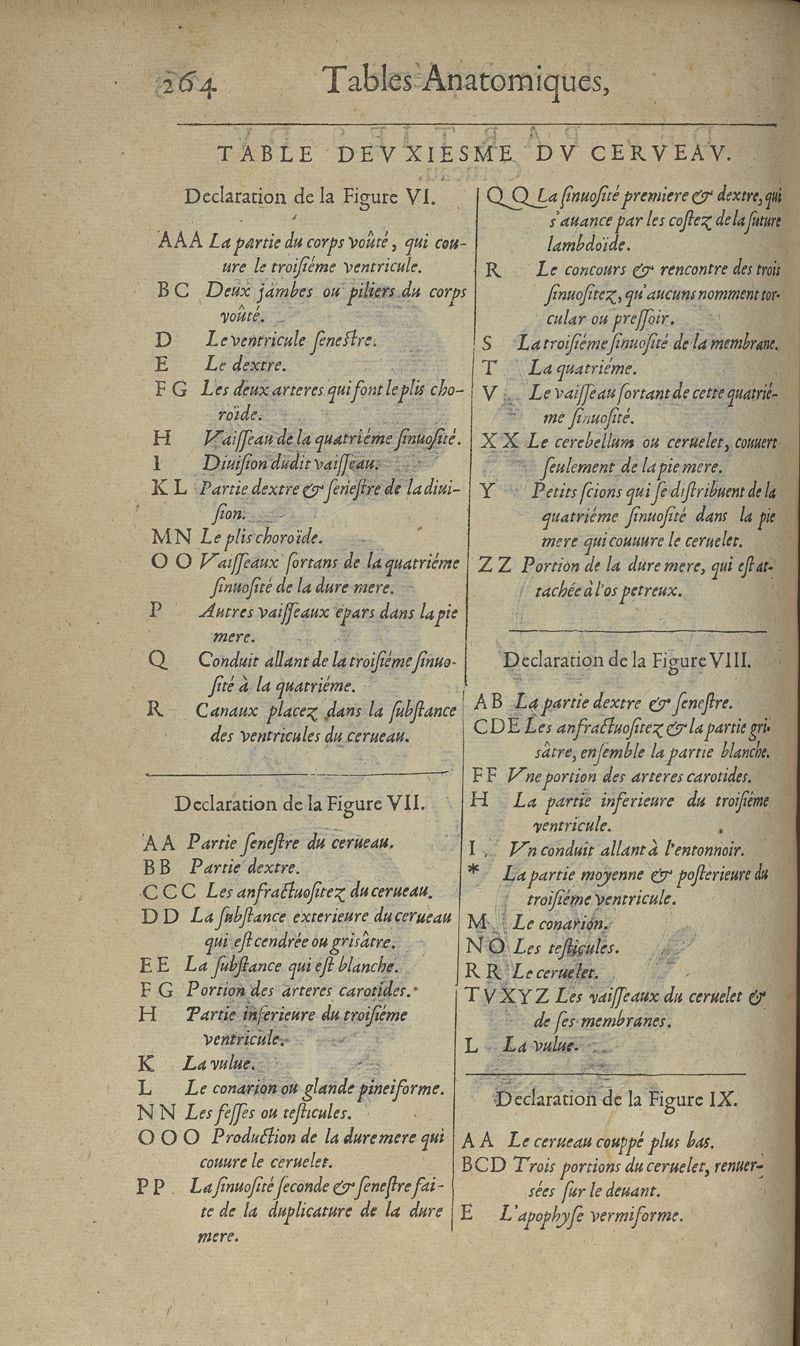 264 Tables Anatomiques,
TABLE DEVXIESME DV CERVEAV.
Declaration de la Figure VI.
AAA La partie du corps voûté, qui cou-
ure le troisiéme ventricule.
B C Deux jambes ou piliers du corps
voûté.
D Le ventricule senestre.
E Le dextre.
F G Les deux arteres qui font le plis cho-
roïde.
H Vaisseau de la quatriéme sinuosité.
I Diuision dudit vaisseau.
K L Partie dextre & senestre de la diui-
sion.
M N Le plis choroïde.
O O Vaisseaux sortans de la quatriéme
sinuosité de la dure mere.
P Autres vaisseaux epars dans la pie
mere.
Q Conduit allant de la troisiéme sinuo-
sité à la quatriéme.
R Canaux placez dans la substance
des ventricules du cerueau.
Declaration de la Figure VII.
A A Partie senestre du cerueau.
B B Partie dextre.
C C C Les anfractuositez du cerueau.
D D La substance exterieure du cerueau
qui est cendrée ou grisâtre.
E E La substance qui est blanche.
F G Portion des arteres carotides.
H Partie inferieure du troisiéme
ventricule.
K La vulue.
L Le conarion ou glande pineiforme.
N N Les fesses ou testicules.
O O O Production de la dure mere qui
couure le ceruelet.
P P La sinuosité seconde & senestre fai-
te de la duplicature de la dure
mere.
Q Q La sinuosité premiere & dextre, qui
s'auance par les costez de la suture
lambdoïde.
R Le concours & rencontre des trois
sinuositez, qu'aucuns nomment tor-
cular ou pressoir.
S La troisiéme sinuosité de la membrane.
T La quatriéme.
V Le vaisseau sortant de cette quatrié-
me sinuosité.
X X Le cerebellum ou ceruelet, couuert
seulement de la pie mere.
Y Petits scions qui se distribuent de la
quatriéme sinuosité dans la pie
mere qui couuure le ceruelet.
Z Z Portion de la dure mere, qui est at-
tachée à l'os petreux.
Declaration de la Figure VIII.
A B La partie dextre & senestre.
CDE Les anfractuositez & la partie gri-
sâtre, ensemble la partie blanche.
F F Vne portion des arteres carotides.
H La partie inferieure du troisiéme
ventricule.
I Vn conduit allant à l'entonnoir.
* La partie moyenne & posterieure du
troisiéme ventricule.
M Le conarion.
N O Les testicules.
R R Le ceruelet.
T V X Y Z Les vaisseaux du ceruelet &
de ses membranes.
L La vulue.
Declaration de la Figure IX.
A A Le cerueau couppé plus bas.
BCD Trois portions du ceruelet, renuer-
sées sur le deuant.
E L'apophyse vermiforme.